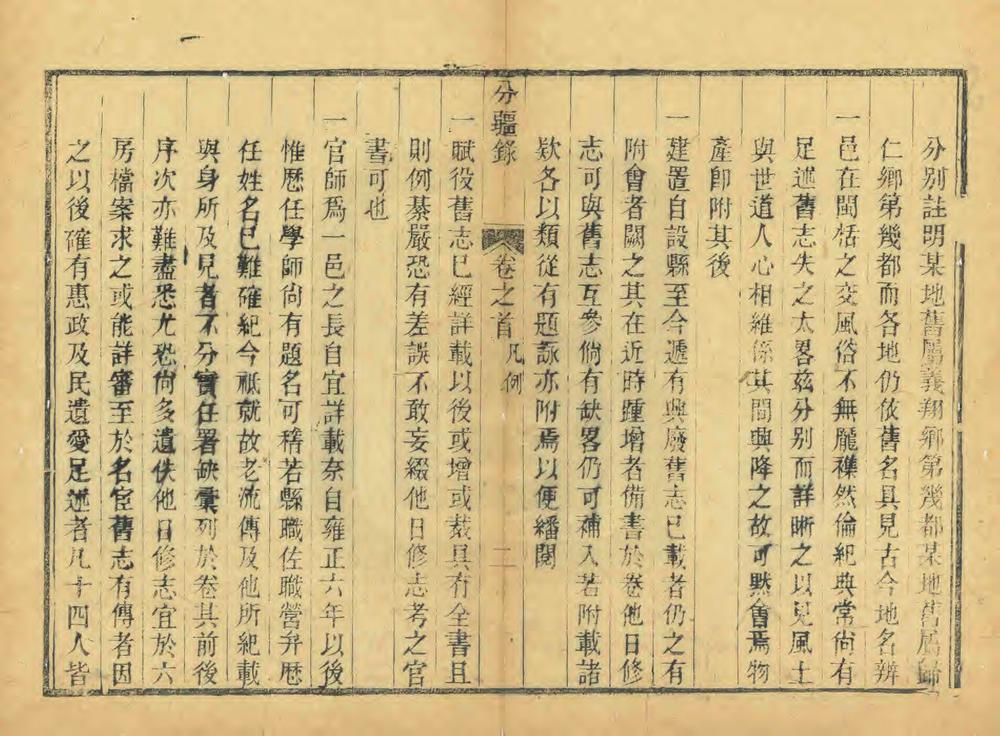 分別註明某地舊屬義翔鄉第幾都某地舊屬歸
仁鄉第幾都而各地仍依舊名具見古今地名辨
一邑在閩栝之交風俗不無龐襍然倫紀典常尙有
足述舊志失之太畧茲分別而詳晰之以見風土
與世道人心相維係其間興降之故可默會焉物
產卽附其後
一建置自設縣至今遞有興廢舊志已載者仍之有
附會者闕之其在近時踵增者備書於卷他日修
志可與舊志互參倘有缺畧仍可補入若附載諸
欵各以類從有題詠亦附焉以便繙閱
分疆錄
卷之首
凡例
二
一賦役舊志已經詳載以後或增或裁具有全書且
則例綦嚴恐有差誤不敢妄綴他日修志考之官
書可也
一官師爲一邑之長自宜詳載奈自雍正六年以後
惟歷任學師尙有題名可稽若縣職佐職營弁歷
任姓名已難確紀今祗就故老流傳及他所紀載
與身所及見者不分實任署缺彙列於卷其前後
序次亦難盡悉尤恐尙多遺佚他日修志宜於六
房檔案求之或能詳審至於名宦舊志有傳者因
之以後確有惠政及民遺愛足述者凡十四人皆